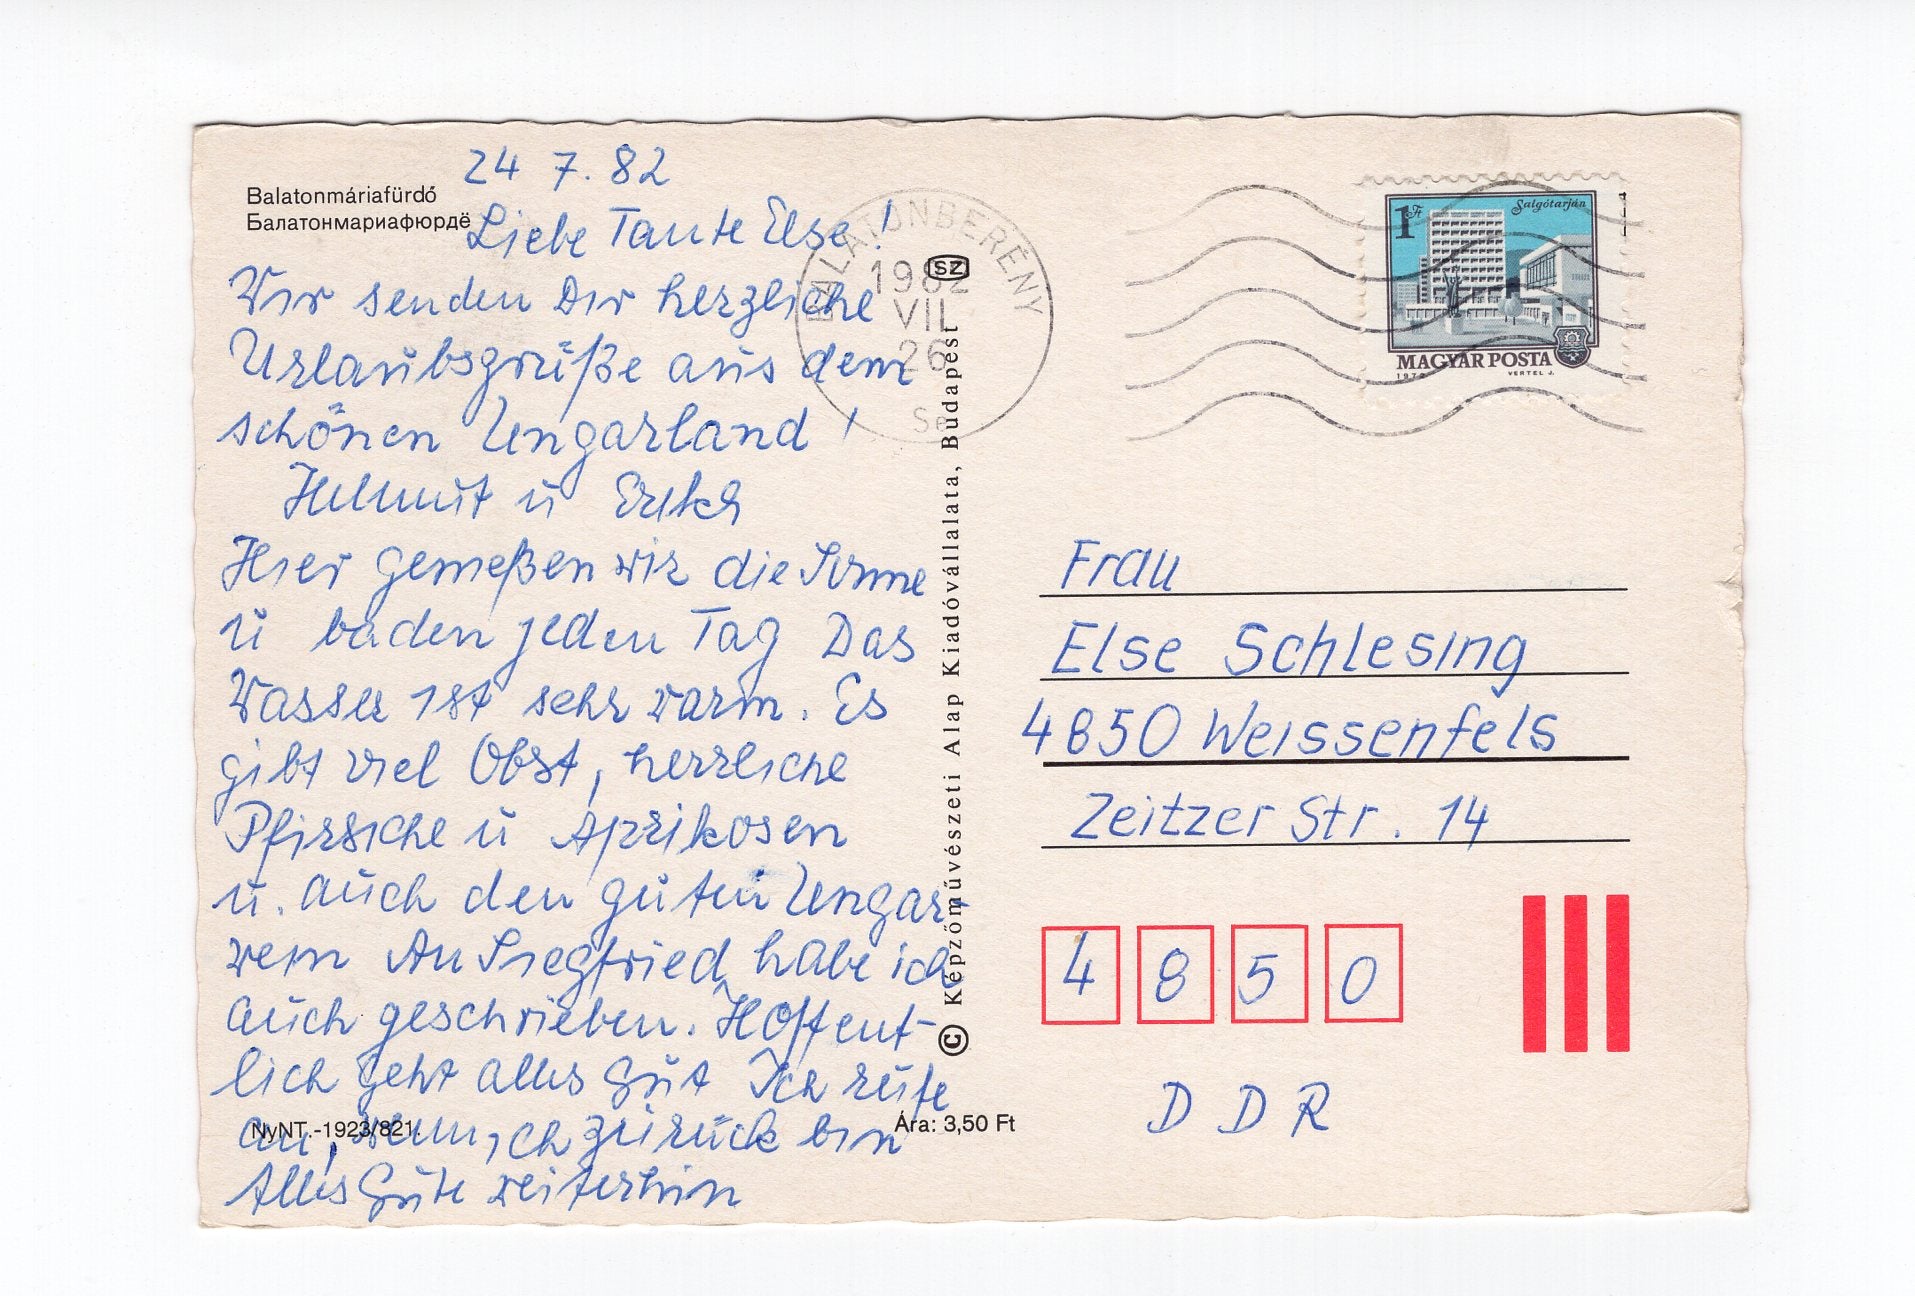 24 7. 82
Balatonmáriafürdő
Балатонмариафюрдё
Liebe Tante Else!
Wir senden Dir herzliche
Urlaubsgrüße aus dem
schönen Ungarland!
Helmut u Erika
Hier genießen wir die Sonne
u baden jeden Tag Das
Wasser ist sehr warm. Es
gibt viel Obst, herrliche
Pfirsiche u Aprikosen
u. auch den guten Ungar-
wein An Siegfried habe ich
auch geschrieben. Hoffent-
lich geht alles gut Ich rufe
an, wenn ich zurück bin
Alles Gute weiterhin
NyNT.-1923/821
Ára: 3,50 Ft
© Képzőművészeti Alap Kiadóvállalata, Budapest
SZ
BALATONBERÉNY
1982
VII
26
1 Ft
Salgótarján
MAGYAR POSTA
VERTEL J.
Frau
Else Schlesing
4850 Weissenfels
Zeitzer Str. 14
4 8 5 0
D D R